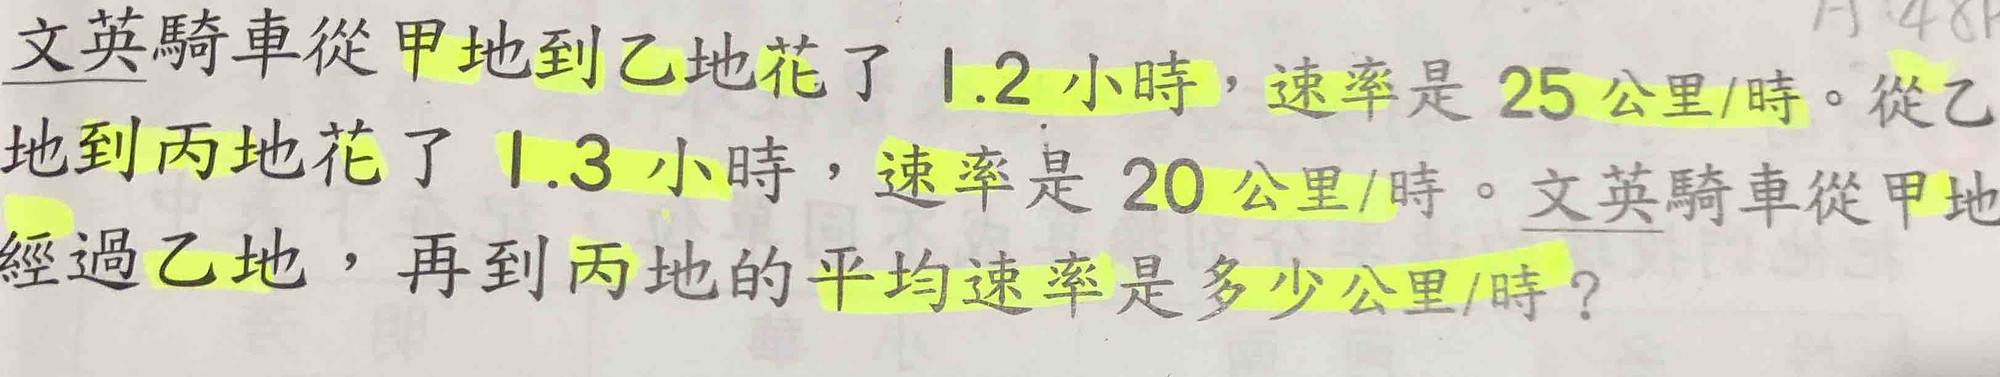 文英騎車從甲地到乙地花了 1.2 小時，速率是 25 公里/時。從乙
地到丙地花了 1.3 小時，速率是 20 公里/時。文英騎車從甲地
經過乙地，再到丙地的平均速率是多少公里/時？